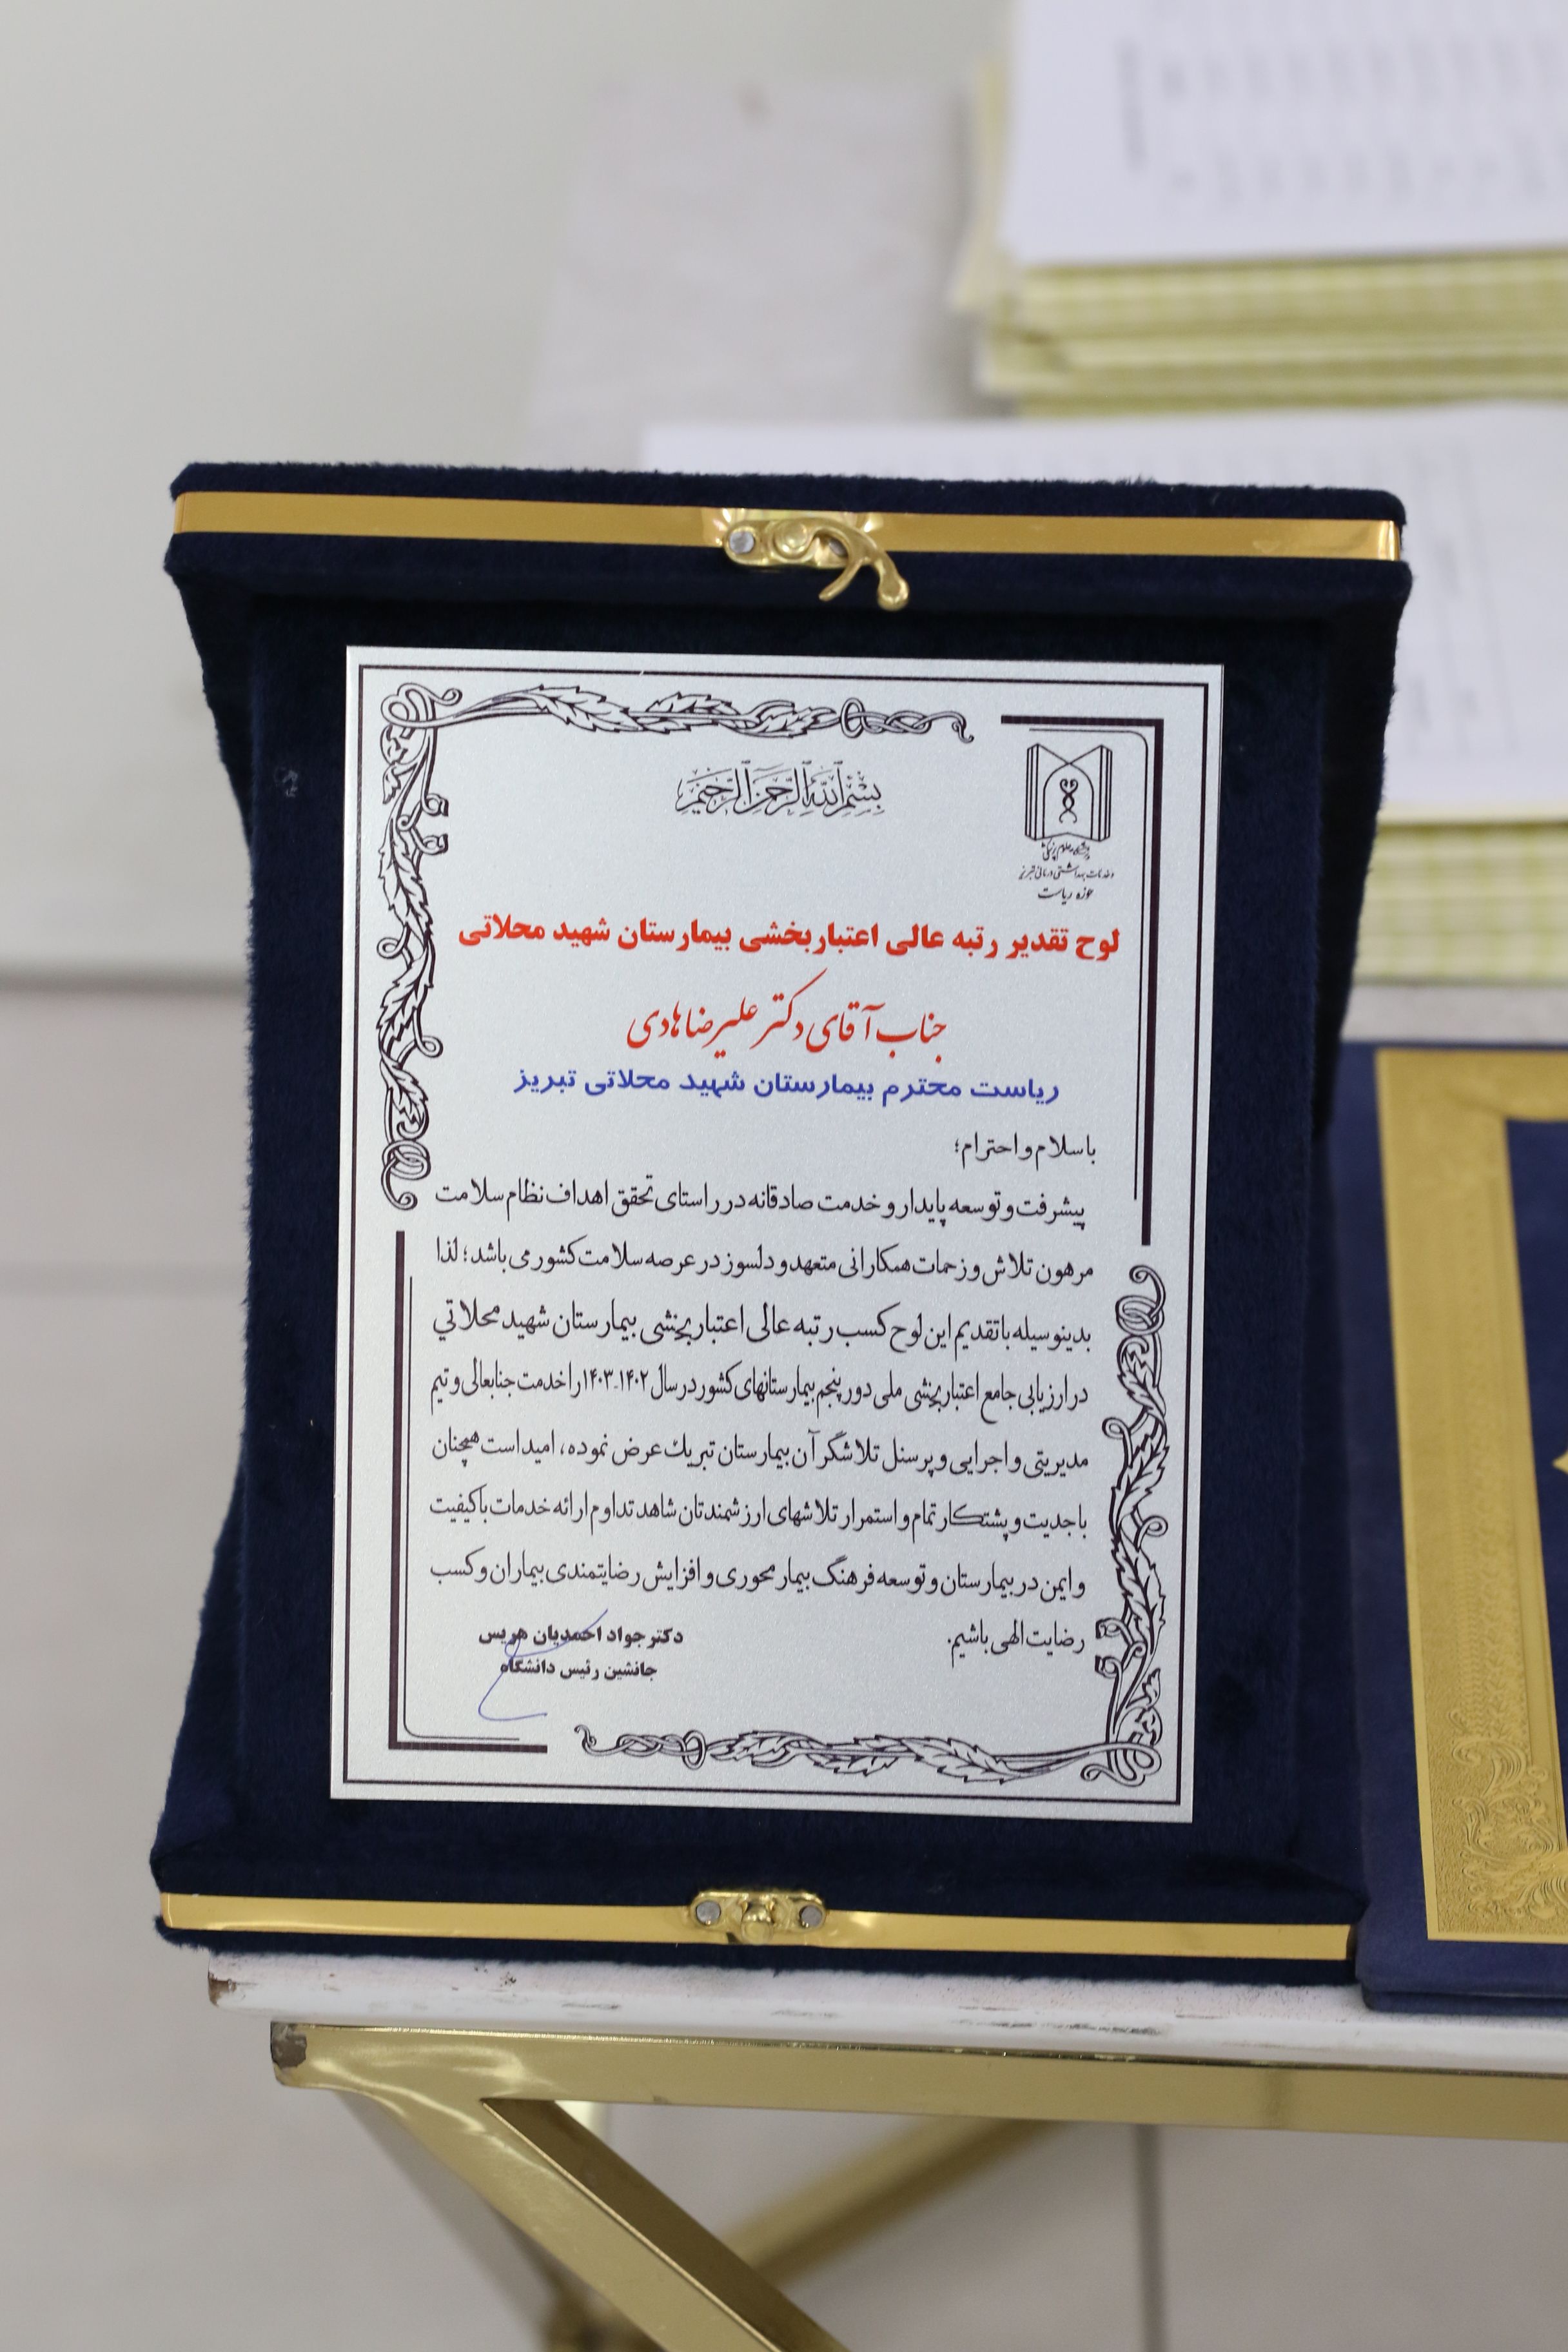 بسم الله الرحمن الرحیم
دانشگاه علوم پزشکی
و خدمات بهداشتی درمانی تبریز
حوزه ریاست
لوح تقدیر رتبه عالی اعتباربخشی بیمارستان شهید محلاتی
جناب آقای دکتر علیرضا هادی
ریاست محترم بیمارستان شهید محلاتی تبریز
با سلام و احترام؛
پیشرفت و توسعه پایدار و خدمت صادقانه در راستای تحقق اهداف نظام سلامت
مرهون تلاش و زحمات همکارانی متعهد و دلسوز در عرصه سلامت کشور می باشد؛ لذا
بدینوسیله با تقدیم این لوح کسب رتبه عالی اعتباربخشی بیمارستان شهید محلاتي
در ارزیابی جامع اعتباربخشی ملی دور پنجم بیمارستانهای کشور در سال ۱۴۰۲-۱۴۰۳ را خدمت جنابعالی و تیم
مدیریتی و اجرایی و پرسنل تلاشگر آن بیمارستان تبریك عرض نموده، امید است همچنان
با جدیت و پشتکار تمام و استمرار تلاشهای ارزشمندتان شاهد تداوم ارائه خدمات با کیفیت
و ایمن در بیمارستان و توسعه فرهنگ بیمار محوری و افزایش رضایتمندی بیماران و کسب
رضایت الهی باشیم.
دکتر جواد احمدیان هریس
جانشین رئیس دانشگاه